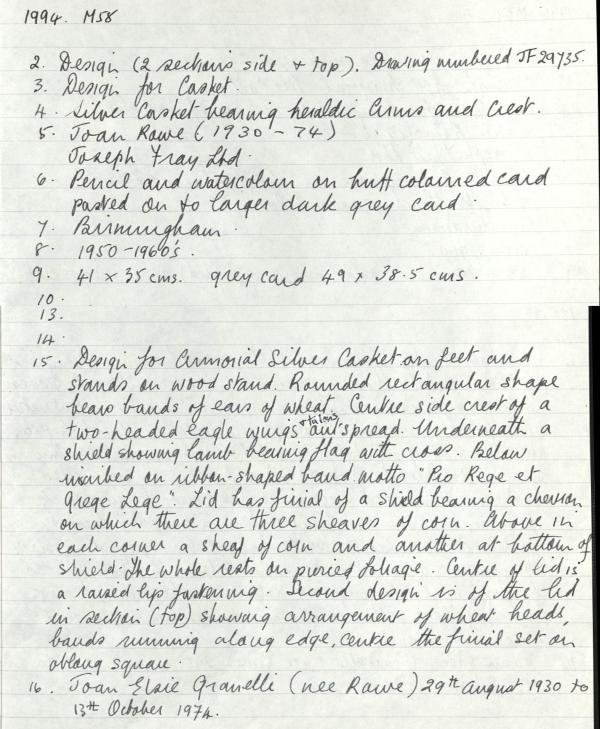 1994. M58
2. Design (2 sections side + top). Drawing numbered JF29735.
3. Design for Casket.
4. Silver Casket bearing heraldic Arms and Crest.
5. Joan Rawe (1930-74)
Joseph Fray Ltd.
6. Pencil and watercolour on buff coloured card
pasted on to larger dark grey card.
7. Birmingham.
8. 1950-1960's.
9. 41 x 35 cms. grey card 49 x 38.5 cms.
10.
13.
14.
15. Design for Armorial Silver Casket on feet and
stands on wood stand. Rounded rectangular shape
bears bands of ears of wheat. Centre side crest of a
two-headed eagle wings + talons outspread. Underneath a
shield showing lamb bearing flag with cross. Below
inscribed on ribbon-shaped band motto "Pro Rege et
Grege Lege". Lid has finial of a shield bearing a chevron
on which there are three sheaves of corn. Above in
each corner a sheaf of corn and another at bottom of
shield. The whole rests on pierced foliage. Centre of lid is
a raised lip fastening. Second design is of the lid
in section (top) showing arrangement of wheat heads,
bands running along edge, centre the finial set on
oblong square.
16. Joan Elsie Granelli (nee Rawe) 29th August 1930 to
13th October 1974.